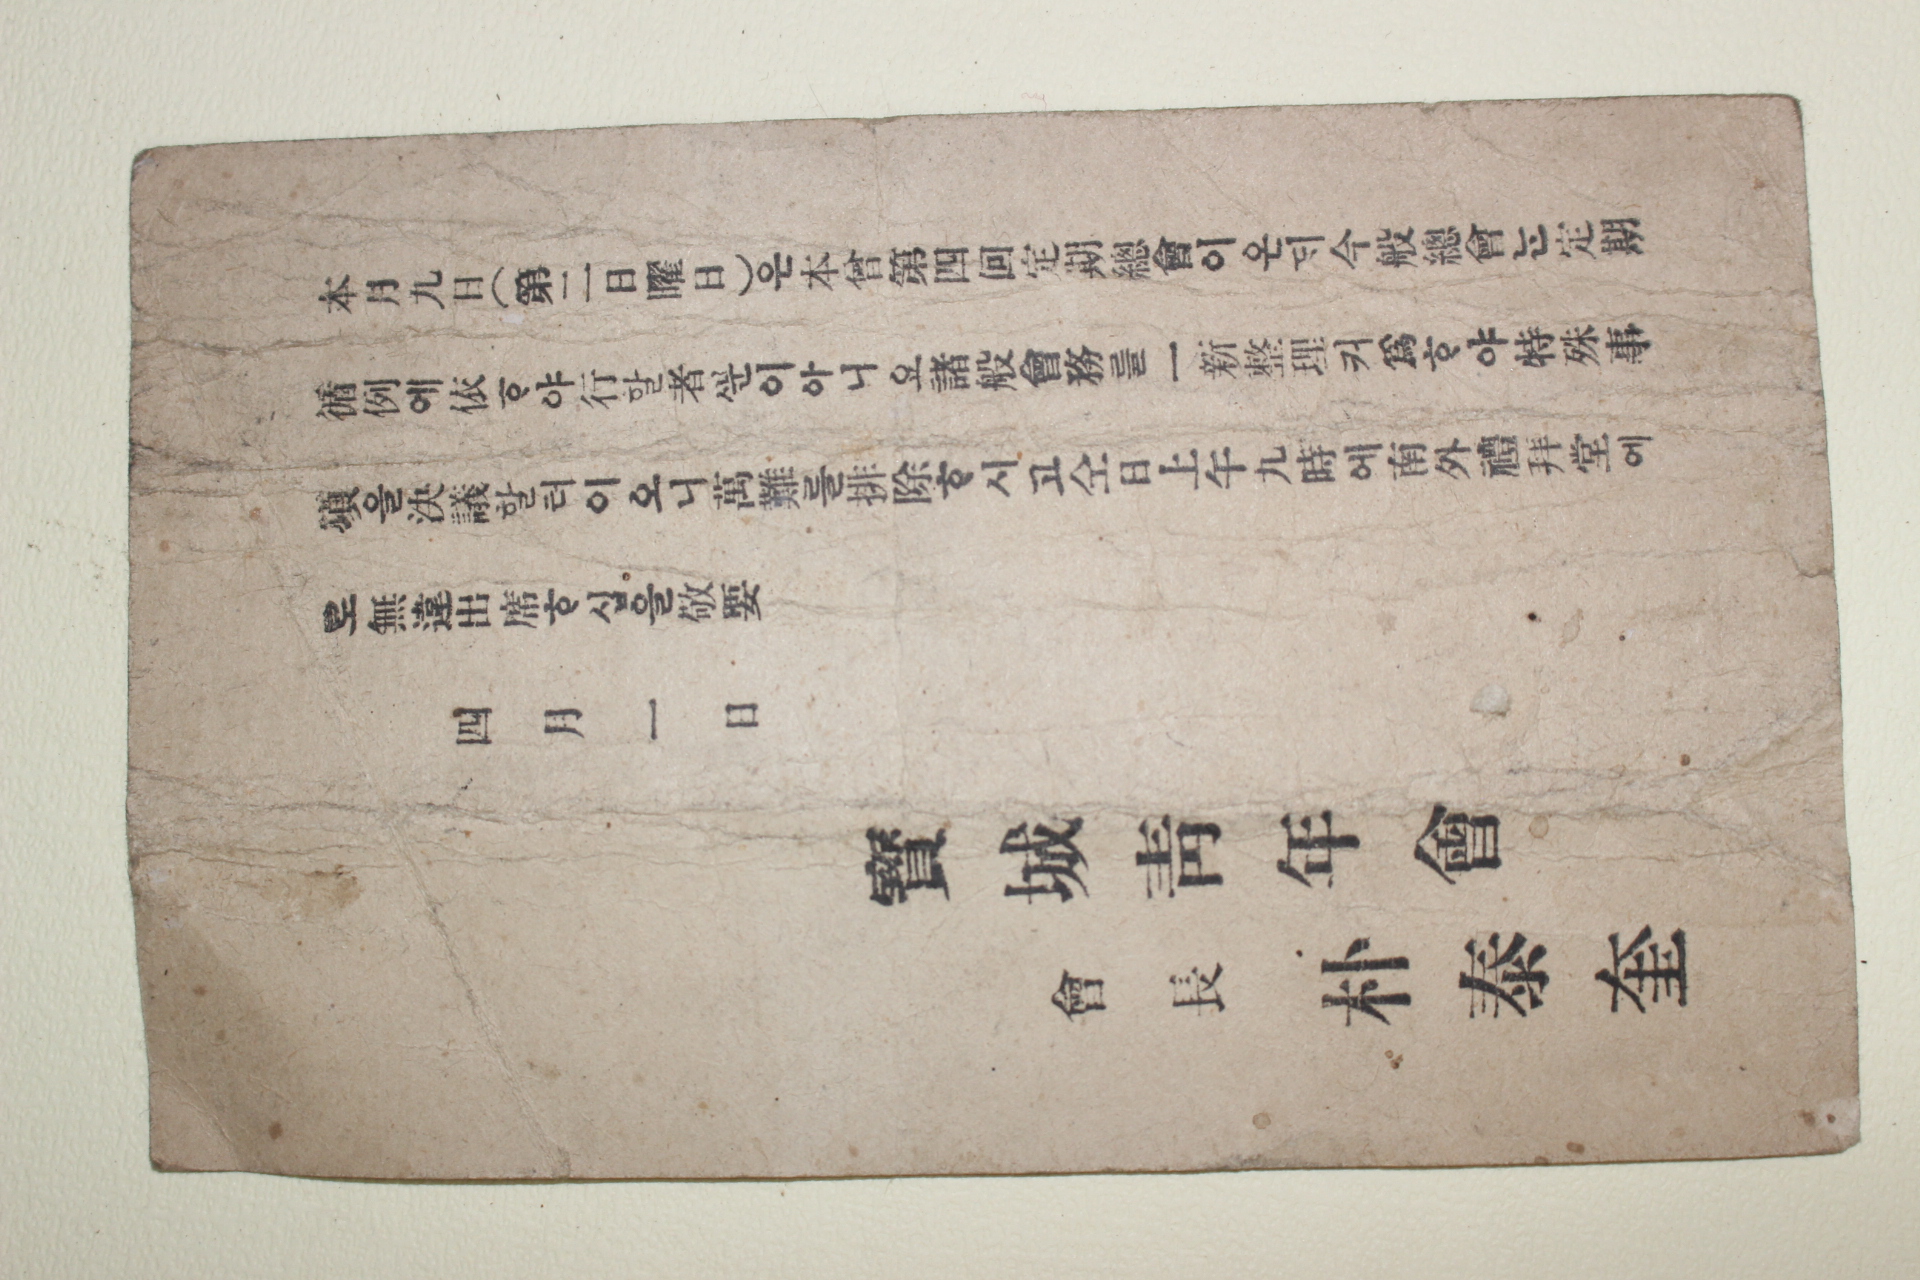 本月九日(第二日曜日)은本會第四回定期總會이온되今般總會는定期
循例에依ᄒᆞ야行할者ᄲᅮᆫ이아니오諸般會務를一新整理커爲ᄒᆞ야特殊事
項을決議할터이오니萬難를排除ᄒᆞ시고仝日上午九時에南外禮拜堂에
로無違出席ᄒᆞ십을敬要
四月一日
寶城靑年會
會長 朴泰奎